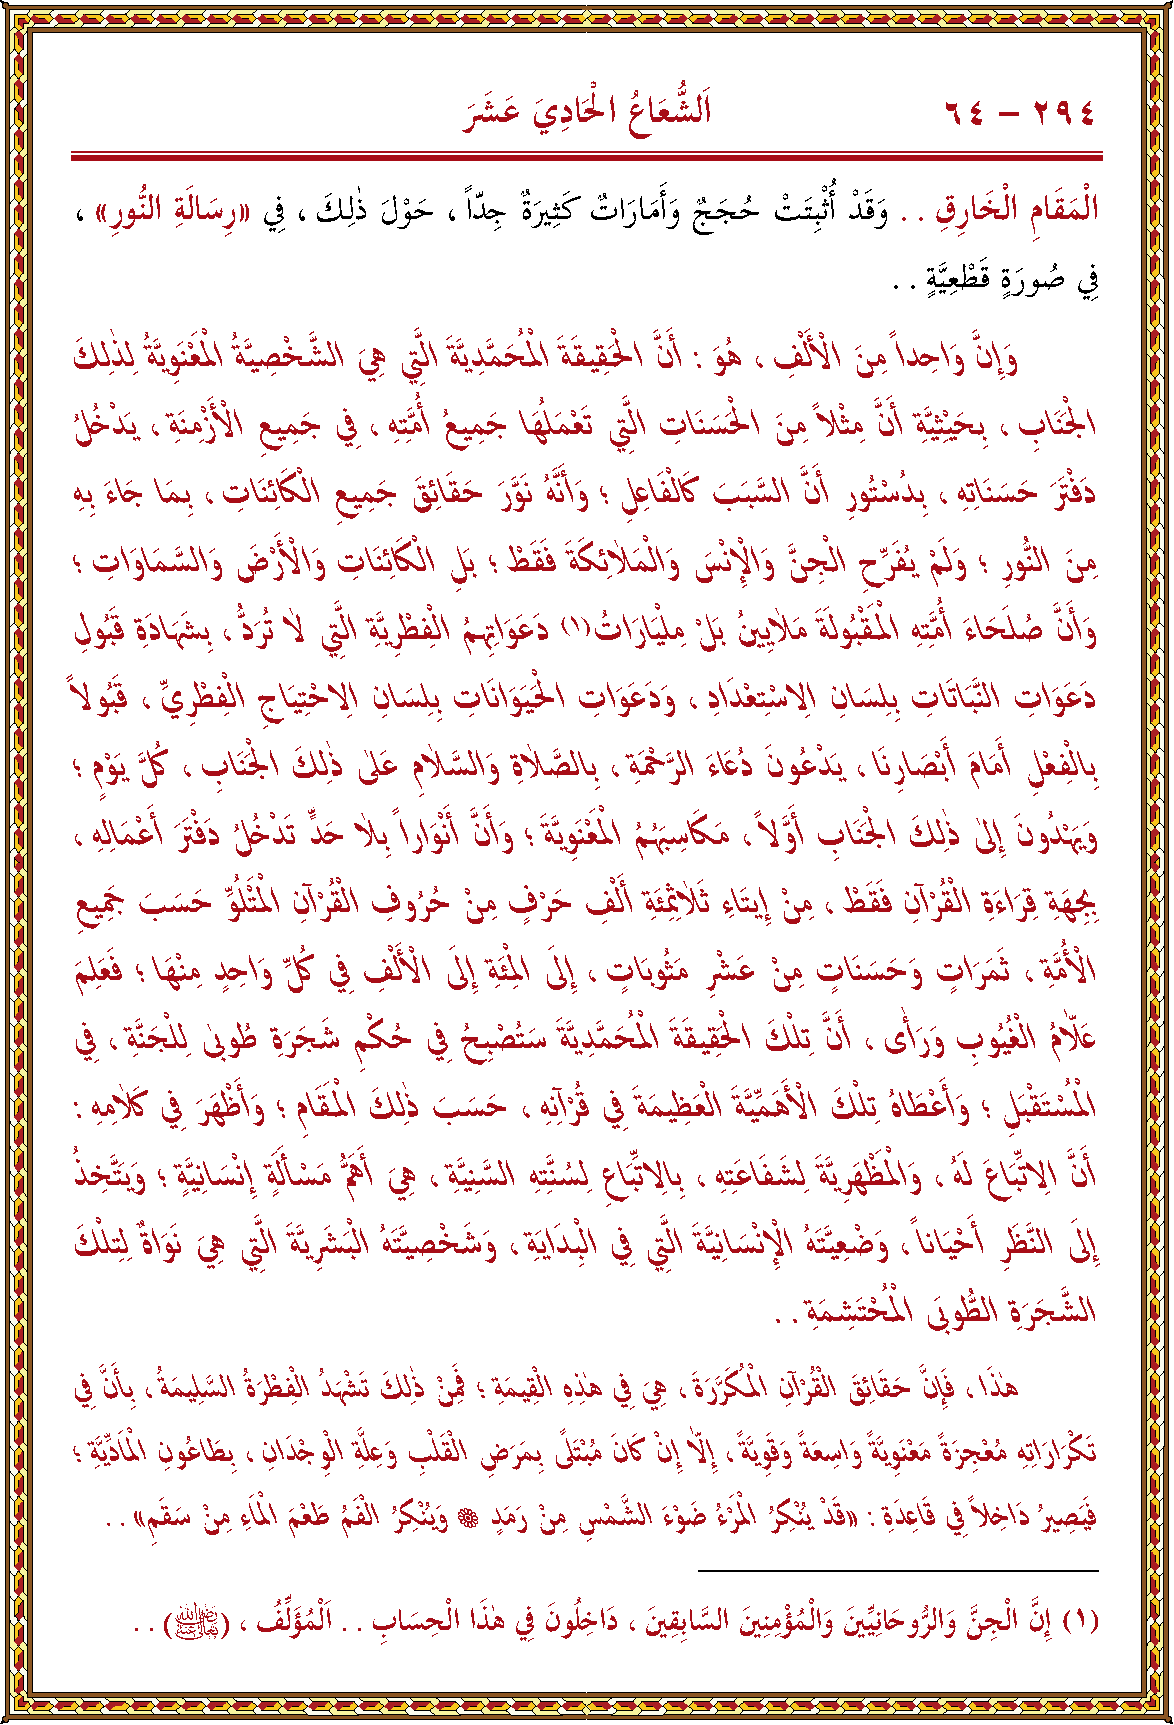 ٢٩٤ - ٦٤ اَلشُّعَاعُ الْحَادِيَ عَشَرَ
الْمَقَامِ الْخَارِقِ . . وَقَدْ أُثْبِتَتْ حُجَجٌ وَأَمَارَاتٌ كَثِيرَةٌ جِدّاً ، حَوْلَ ذٰلِكَ ، فِي «رِسَالَةِ النُّورِ» ،
فِي صُورَةٍ قَطْعِيَّةٍ . .
وَإِنَّ وَاحِداً مِنَ الْأَلْفِ ، هُوَ : أَنَّ الْحَقِيقَةَ الْمُحَمَّدِيَّةَ الَّتِي هِيَ الشَّخْصِيَّةُ الْمَعْنَوِيَّةُ لِذٰلِكَ
الْجَنَابِ ، بِحَيْثِيَّةِ أَنَّ مِثْلاً مِنَ الْحَسَنَاتِ الَّتِي تَعْمَلُهَا جَمِيعُ أُمَّتِهِ ، فِي جَمِيعِ الْأَزْمِنَةِ ، يَدْخُلُ
دَفْتَرَ حَسَنَاتِهِ ، بِدُسْتُورِ أَنَّ السَّبَبَ كَالْفَاعِلِ ؛ وَأَنَّهُ نَوَّرَ حَقَائِقَ جَمِيعِ الْكَائِنَاتِ ، بِمَا جَاءَ بِهِ
مِنَ النُّورِ ؛ وَلَمْ يُفَرِّحِ الْجِنَّ وَالْإِنْسَ وَالْمَلَائِكَةَ فَقَطْ ؛ بَلِ الْكَائِنَاتِ وَالْأَرْضَ وَالسَّمَاوَاتِ ؛
وَأَنَّ صُلَحَاءَ أُمَّتِهِ الْمَقْبُولَةَ مَلَايِينُ بَلْ مِلْيَارَاتُ(١) دَعَوَاتِهِمُ الْفِطْرِيَّةِ الَّتِي لَا تُرَدُّ ، بِشَهَادَةِ قَبُولِ
دَعَوَاتِ النَّبَاتَاتِ بِلِسَانِ الِاسْتِعْدَادِ ، وَدَعَوَاتِ الْحَيَوَانَاتِ بِلِسَانِ الِاحْتِيَاجِ الْفِطْرِيِّ ، قَبُولاً
بِالْفِعْلِ أَمَامَ أَبْصَارِنَا ، يَدْعُونَ دُعَاءَ الرَّحْمَةِ ، بِالصَّلَاةِ وَالسَّلَامِ عَلَى ذٰلِكَ الْجَنَابِ ، كُلَّ يَوْمٍ ؛
وَيَهْدُونَ إِلَى ذٰلِكَ الْجَنَابِ أَوَّلاً ، مَكَاسِبَهُمُ الْمَعْنَوِيَّةَ ؛ وَأَنَّ أَنْوَاراً بِلَا حَدٍّ تَدْخُلُ دَفْتَرَ أَعْمَالِهِ ،
بِجِهَةِ قِرَاءَةِ الْقُرْآنِ فَقَطْ ، مِنْ إِيتَاءِ ثَلَاثِمِئَةِ أَلْفِ حَرْفٍ مِنْ حُرُوفِ الْقُرْآنِ الْمَتْلُوِّ حَسَبَ جَمِيعِ
الْأُمَّةِ ، ثَمَرَاتٍ وَحَسَنَاتٍ مِنْ عَشْرِ مَثُوبَاتٍ ، إِلَى الْمِئَةِ إِلَى الْأَلْفِ فِي كُلِّ وَاحِدٍ مِنْهَا ؛ فَعَلِمَ
عَلَّامُ الْغُيُوبِ وَرَأَى ، أَنَّ تِلْكَ الْحَقِيقَةَ الْمُحَمَّدِيَّةَ سَتُصْبِحُ فِي حُكْمِ شَجَرَةِ طُوبٰى لِلْجَنَّةِ ، فِي
الْمُسْتَقْبَلِ ؛ وَأَعْطَاهُ تِلْكَ الْأَهَمِّيَّةَ الْعَظِيمَةَ فِي قُرْآنِهِ ، حَسَبَ ذٰلِكَ الْمَقَامِ ؛ وَأَظْهَرَ فِي كَلَامِهِ :
أَنَّ الِاتِّبَاعَ لَهُ ، وَالْمَظْهَرِيَّةَ لِشَفَاعَتِهِ ، بِالِاتِّبَاعِ لِسُنَّتِهِ السَّنِيَّةِ ، هِيَ أَهَمُّ مَسْأَلَةٍ إِنْسَانِيَّةٍ ؛ وَيَتَّخِذُ
إِلَى النَّظَرِ أَحْيَاناً ، وَضْعِيَّتَهُ الْإِنْسَانِيَّةَ الَّتِي فِي الْبِدَايَةِ ، وَشَخْصِيَّتَهُ الْبَشَرِيَّةَ الَّتِي هِيَ نَوَاةٌ لِتِلْكَ
الشَّجَرَةِ الطُّوبَى الْمُحْتَشِمَةِ . .
هٰذَا ، فَإِنَّ حَقَائِقَ الْقُرْآنِ الْمُكَرَّرَةَ ، هِيَ فِي هٰذِهِ الْقِيمَةِ ؛ فَمِنْ ذٰلِكَ تَشْهَدُ الْفِطْرَةُ السَّلِيمَةُ ، بِأَنَّ فِي
تَكْرَارَاتِهِ مُعْجِزَةً مَعْنَوِيَّةً وَاسِعَةً وَقَوِيَّةً ، إِلَّا إِنْ كَانَ مُبْتَلًى بِمَرَضِ الْقَلْبِ وَعِلَّةِ الْوِجْدَانِ ، بِطَاعُونِ الْمَادِّيَّةِ ؛
فَيَصِيرُ دَاخِلاً فِي قَاعِدَةِ : «قَدْ يُنْكِرُ الْمَرْءُ ضَوْءَ الشَّمْسِ مِنْ رَمَدٍ ۞ وَيُنْكِرُ الْفَمُ طَعْمَ الْمَاءِ مِنْ سَقَمِ» . .
(١) إِنَّ الْجِنَّ وَالرُّوحَانِيِّينَ وَالْمُؤْمِنِينَ السَّابِقِينَ ، دَاخِلُونَ فِي هٰذَا الْحِسَابِ . . اَلْمُؤَلِّفُ ، () . .